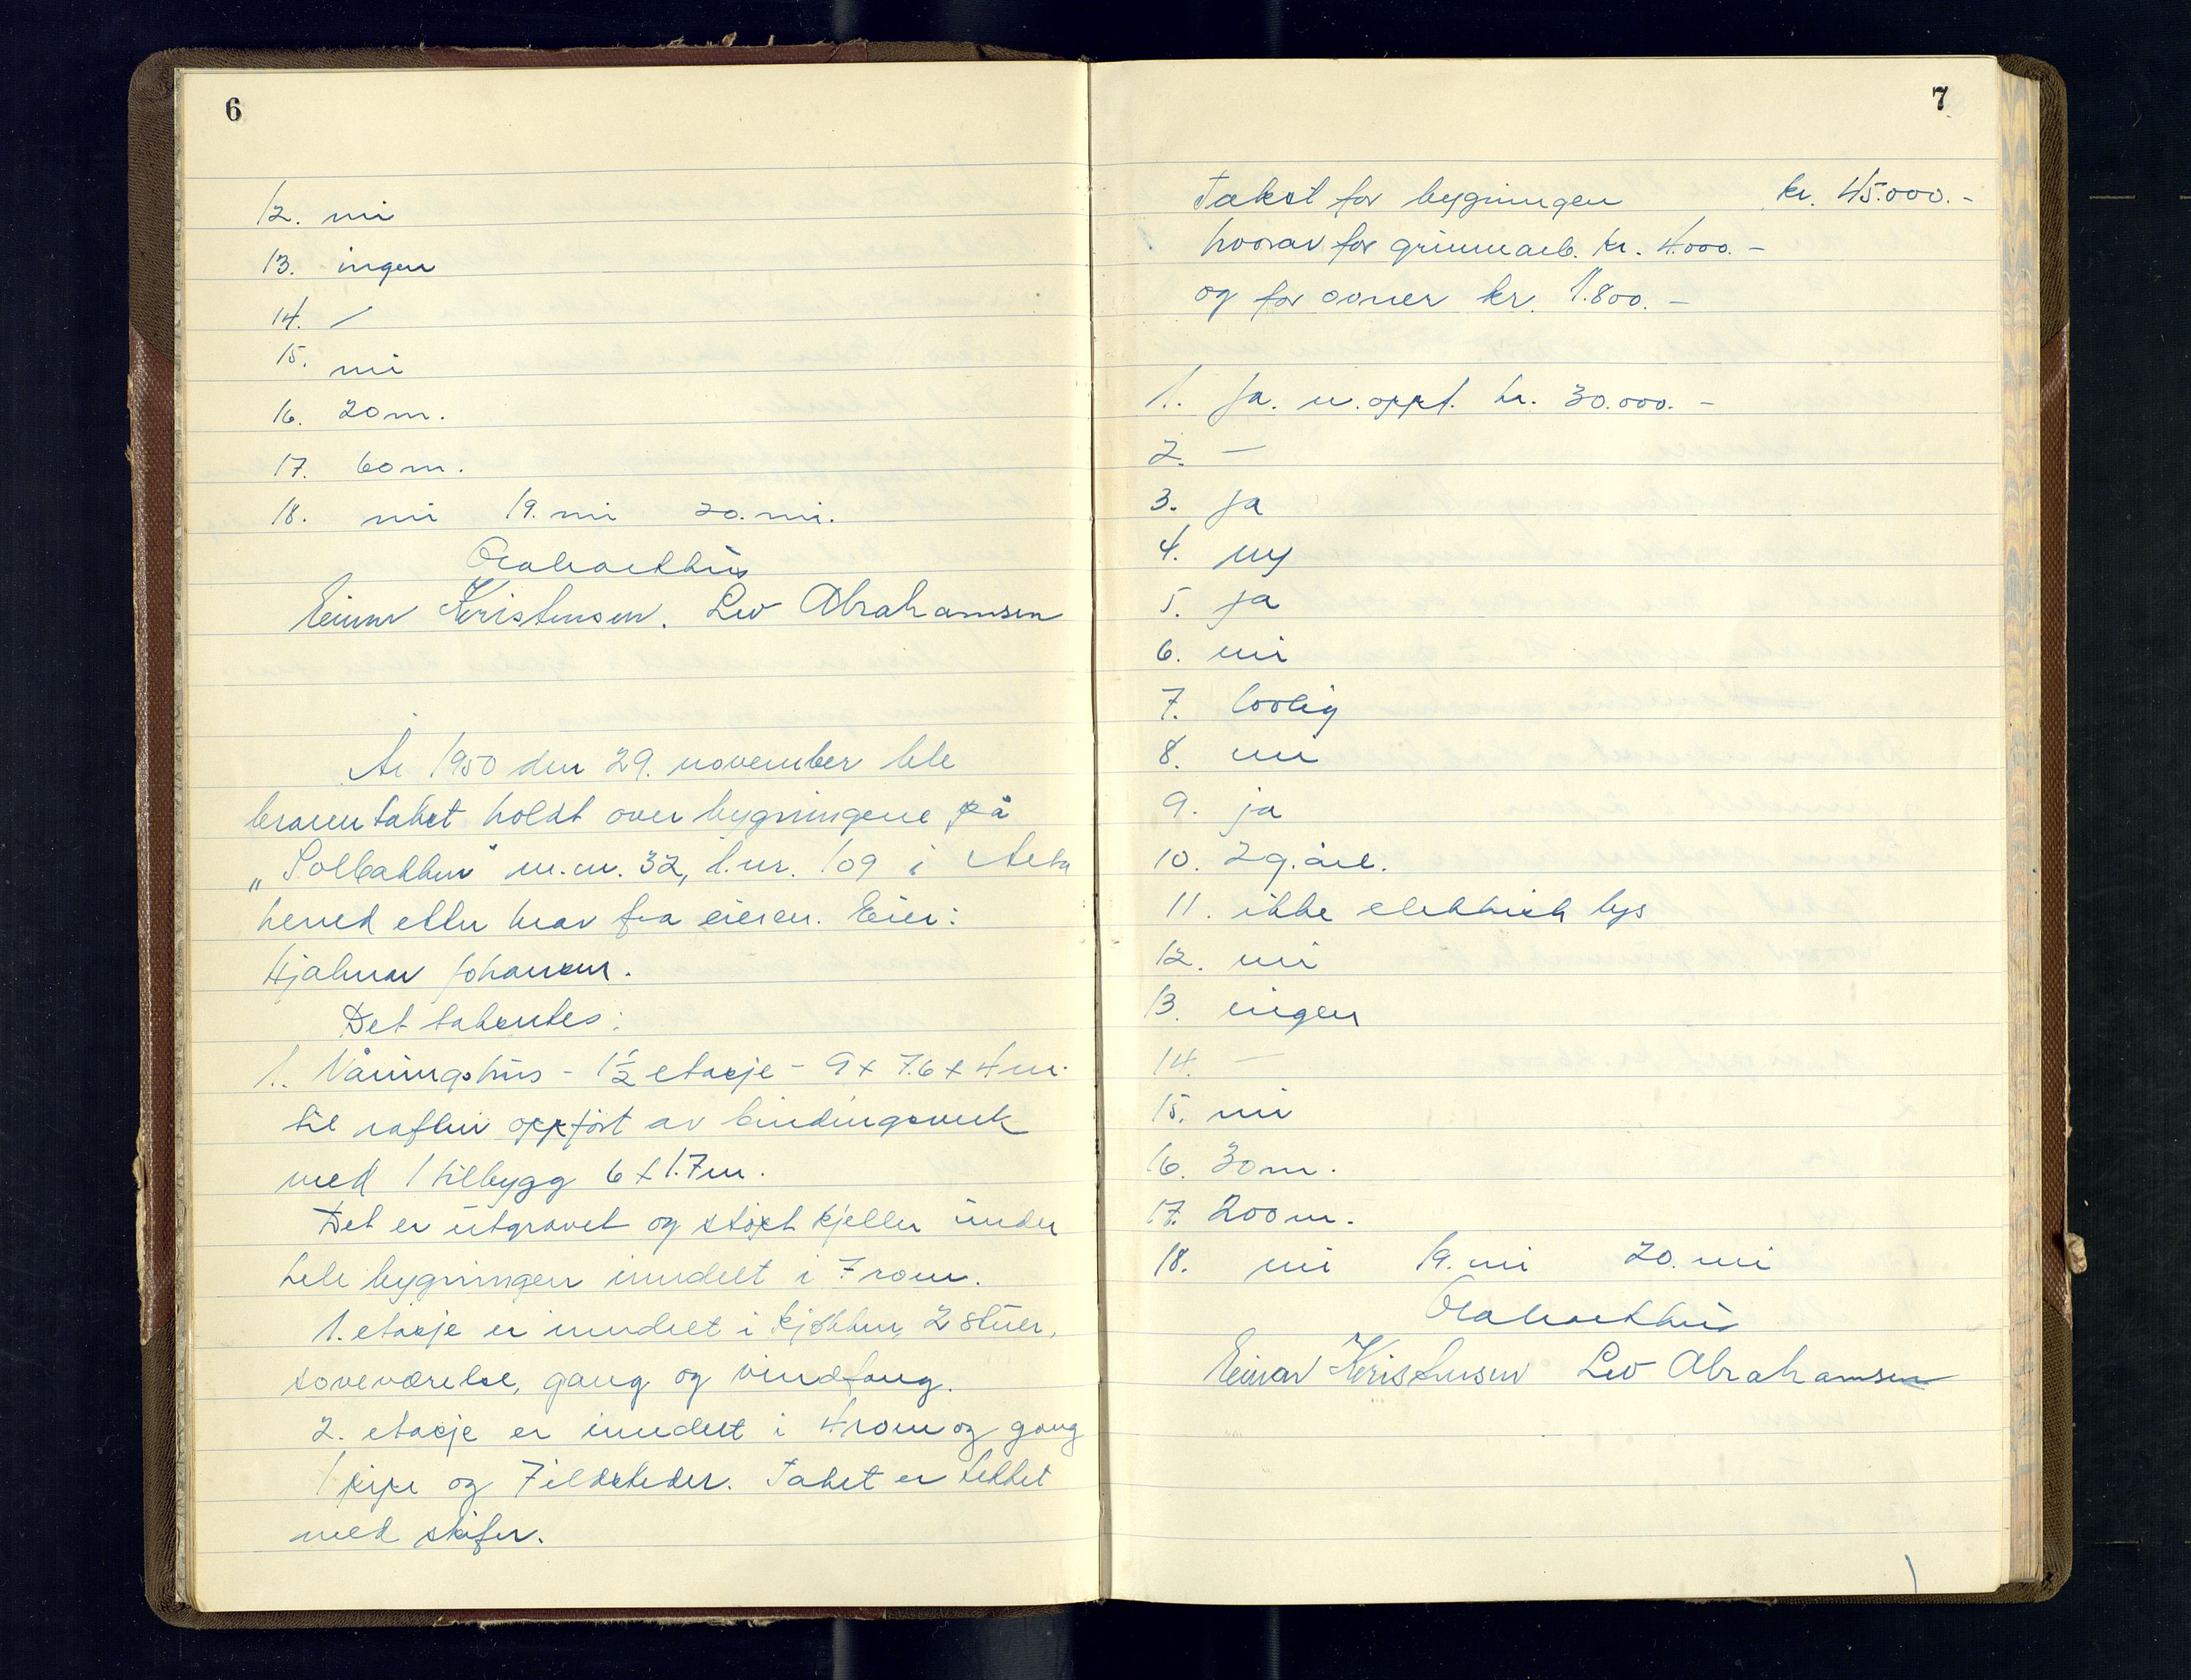 6
12. nei
13. ingen
14. /
15. nei
16. 20 m.
17. 60 m.
18. nei 19. nei 20. nei.
Einar Kristensen. Leo Abrahamsen
År 1950 den 29. november ble
branntakst holdt over bygningene på
„Solbakken" m.nr. 32, l.nr. 109 i
herred etter krav fra eieren. Eier:
Hjalmar Johansen.
Det takseres:
1. Våningshus - 1 1/2 etasje - 9 x 7.6 x 4 m.
til raften oppført av bindingsverk
med 1 tilbygg 6 x 1.7 m.
Det er utgravet og støpt kjeller under
hele bygningen inndelt i 7 rom.
1. etasje er inndelt i kjøkken, 2 stuer,
soveværelse, gang og vindfang.
2. etasje er inndelt i 4 rom og gang
1 pipe og 7 ildsteder. Taket er tekket
med skifer.
7
Takst for bygningen kr. 45.000.-
hvorav for grunnarb. kr. 4.000.-
og for ovner kr. 1.800.-
1. Ja. u.oppf. kr. 30.000.-
2. -
3. ja
4. ny
5. ja
6. nei
7. lovlig
8. nei
9. ja
10. 2 g. årl.
11. ikke elektrisk lys
12. nei
13. ingen
14. -
15. nei
16. 30 m.
17. 200 m.
18. nei 19. nei 20. nei
Einar Kristensen Leo Abrahamsen